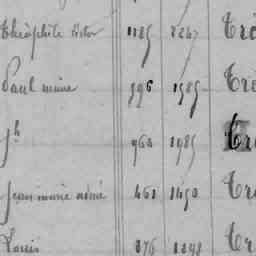 Théophile Victor 1125 2247 Tré
Paul marie 996 1585 Tré
Jh 960 1985 Tré
Jean marie aimé 461 1450 Tré
Louis 376 1298 Tré